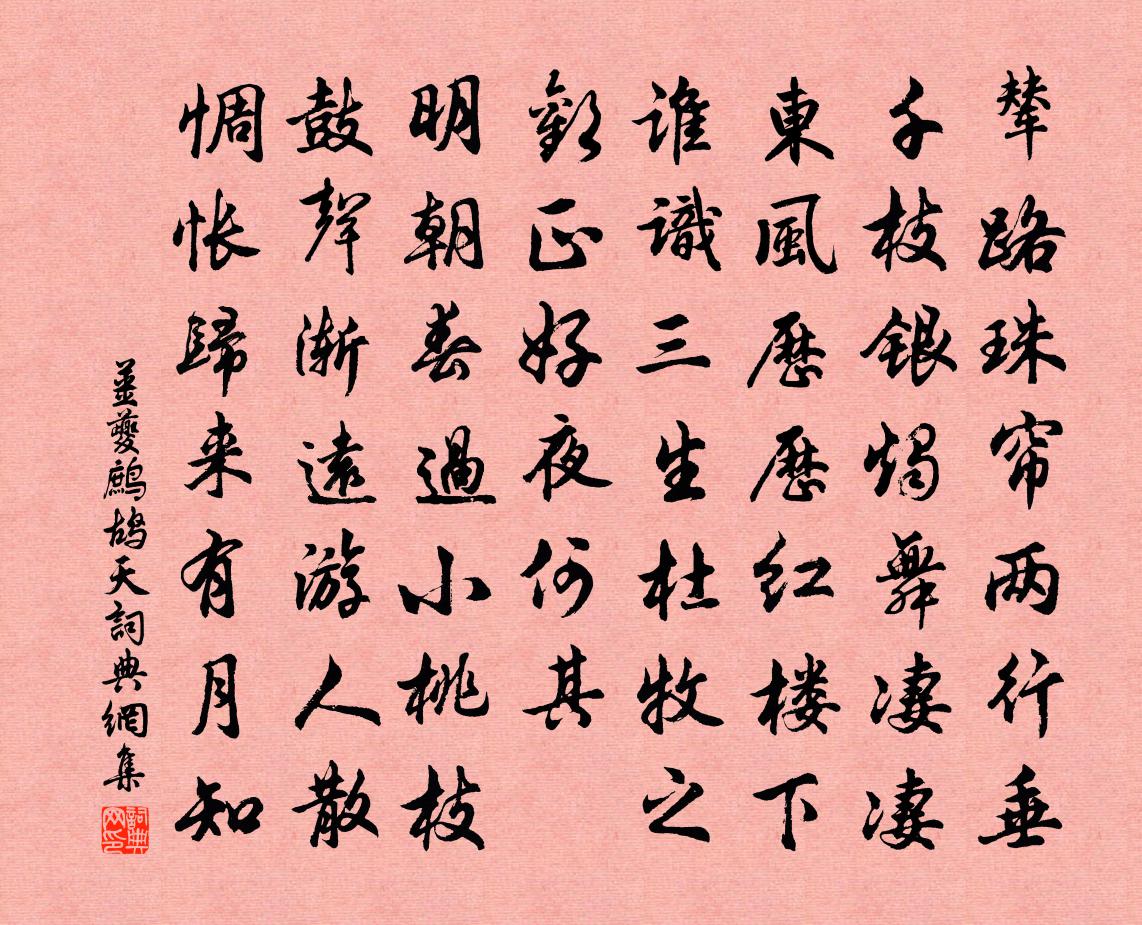 輦路珠帘两行垂
千枝銀燭舞淒淒
東風歷歷红楼下
誰識三生杜牧之
歡正好夜何其
明朝春過小桃枝
鼓聲渐遠游人散
惆怅歸来有月知
姜夔鷓鴣天詞典網集
詞典网印